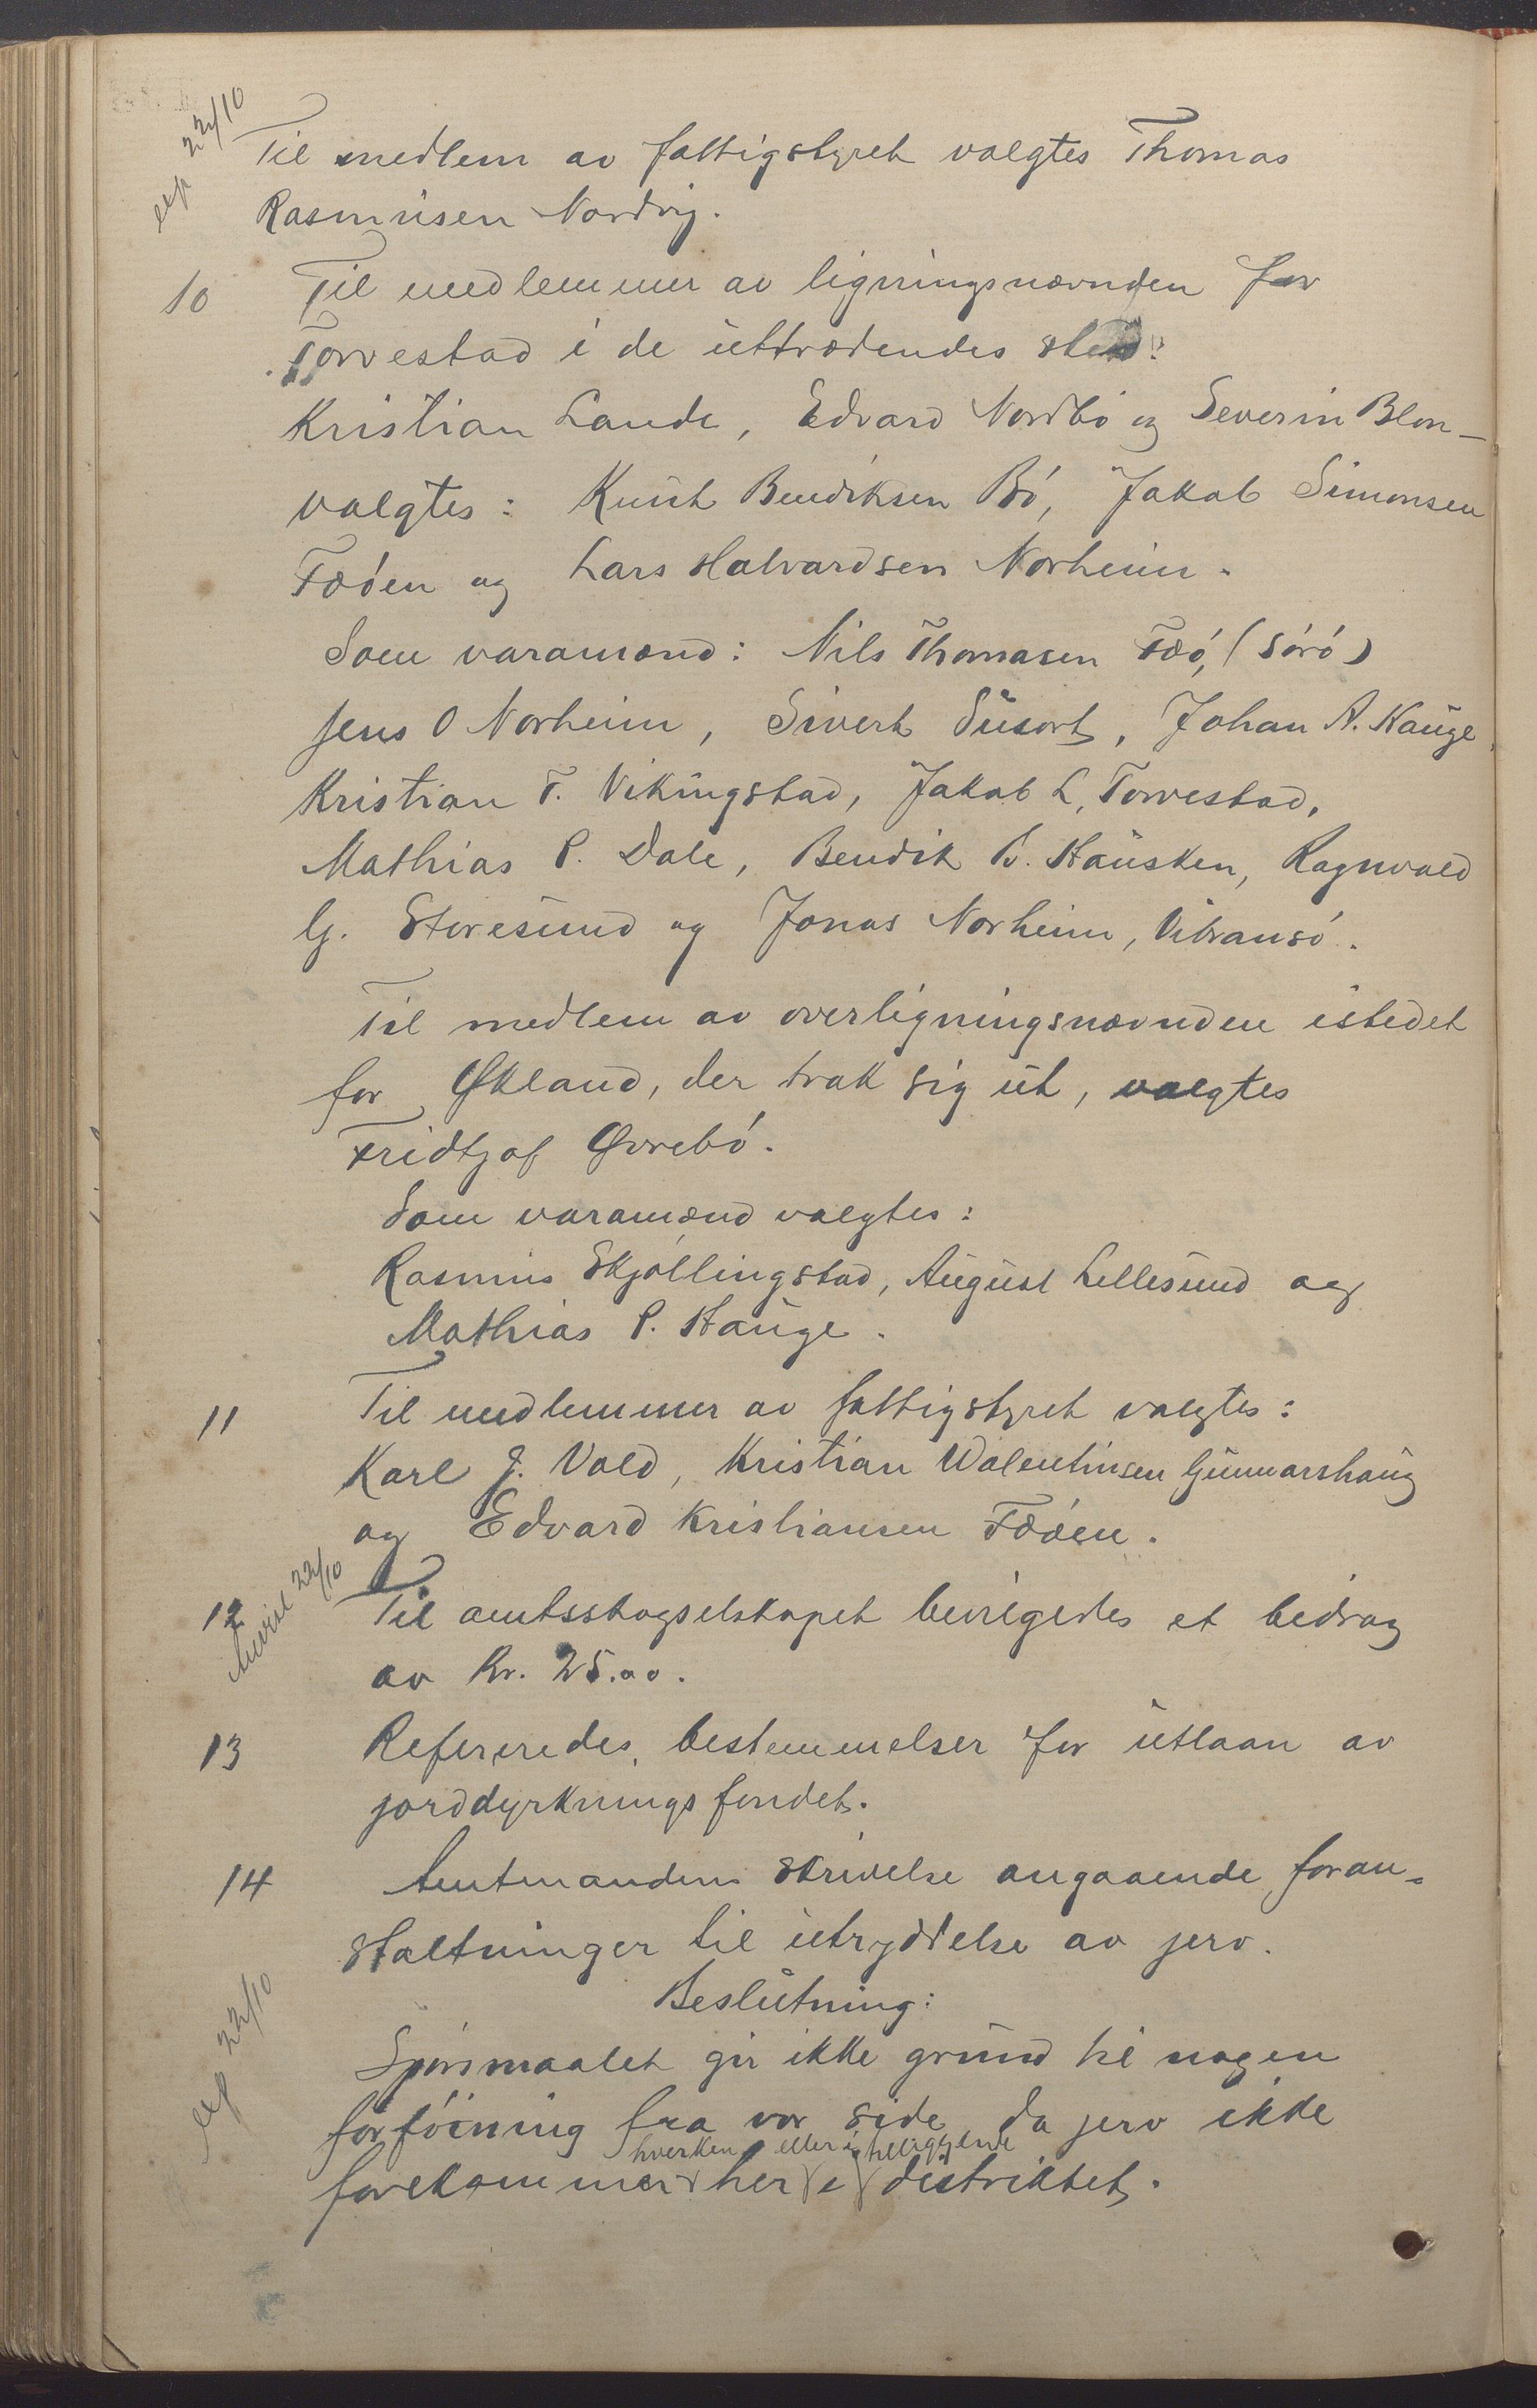 exp 22/10
Til medlem av fattigstyret valgtes Thomas
Rasmusen Nordvig.
10 Til medlemmer av ligningsnævnden for
Torvestad i de uttrædendes sted:
Kristian Lande, Edvard Nordbó og Severin Blon-
valgtes: Knut Bendiksen Bó, Jakob Simonsen
Fæóen og Lars Halvardsen Norheim.
Som varamænd: Nils Thomasen Fæó, (Sóró)
Jens O Norheim, Sivert Susort, Johan A. Hauge,
Kristian T. Vikingstad, Jakob L. Torvestad,
Mathias P. Dale, Bendik B. Hausken, Ragnvald
G. Storesund og Jonas Norheim, Vibransó.
Til medlem av overligningsnævnden istedet
for Økland, der trak sig ut, valgtes
Fridtjof Øvrebó.
Som varamænd valgtes:
Rasmus Skjøllingstad, August Lillesund og
Mathias P. Hauge.
11 Til medlemmer av fattigstyret valgtes:
Karl J. Vold, Kristian Walentinsen Gunnarshaug
og Edvard Kristiansen Fæóen.
Anvist 22/10
12 Til amtsskogselskapet bevilgedes et bidrag
av Kr. 25.00.
13 Refereredes bestemmelser for utlaan av
jorddyrkningsfondet.
14 Amtmandens skrivelse angaaende foran-
staltninger til utryddelse av jerv.
Beslutning:
exp 22/10
Spórsmaalet gir ikke grund til nogen
forfóining fra vor side da jerv ikke
hverken eller i tilliggende
forekommer her i distriktet.